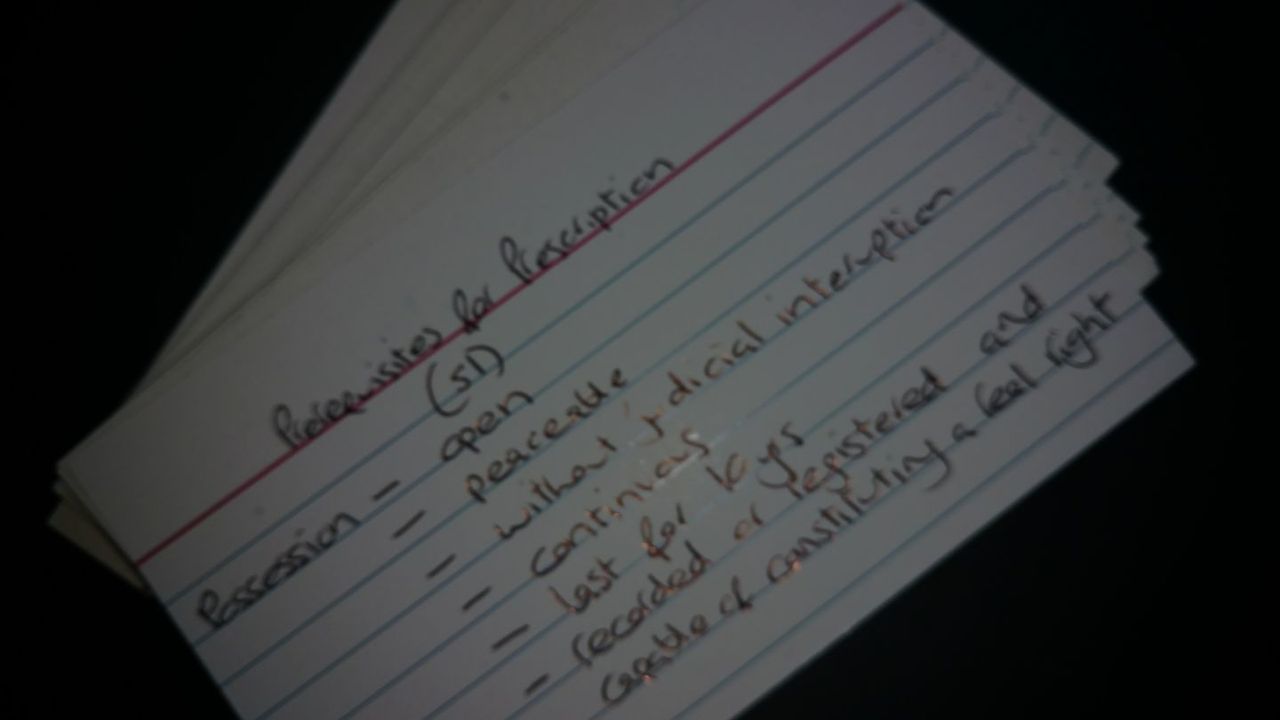 Prerequisites for Prescription
(s1)
Possession - open
- peaceable
- without judicial interruption
- continuous
- last for 10 yrs
- recorded or registered and
capable of constituting a real right